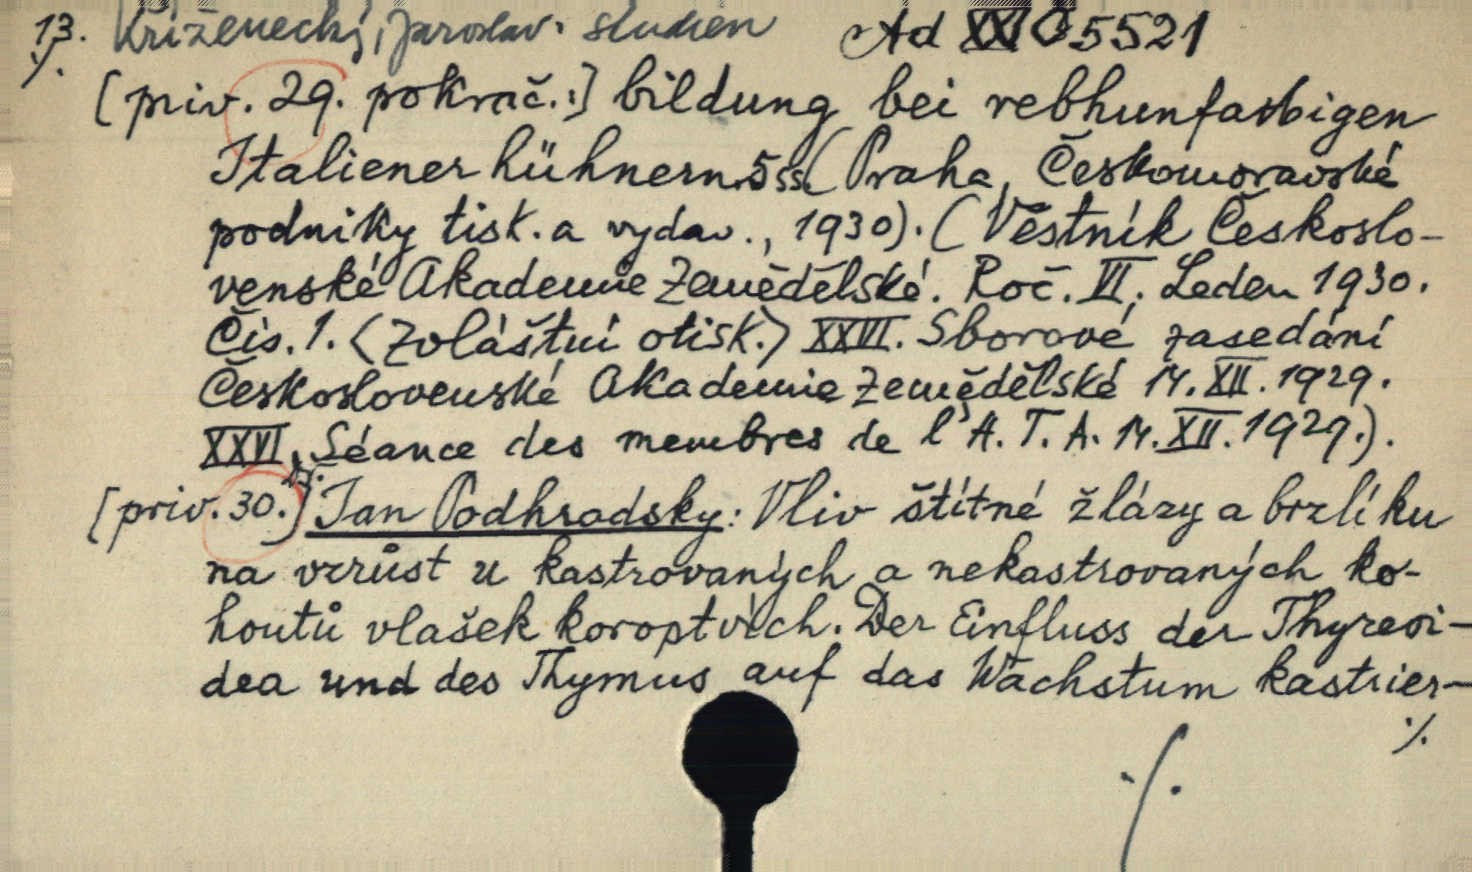 13. Kříženecký, Jaroslav. Studien Ad XXI C 5521
./.
[priv. 29. pokrač.:] bildung bei rebhunfarbigen
Italienerhühnern. 5 ss. (Praha, Českomoravské
podniky tisk. a vydav., 1930). (Věstník Českoslo-
venské Akademie Zemědělské. Roč. VI. Leden 1930.
Čís. 1. <Zvláštní otisk.> XXVI. Sborové zasedání
Československé Akademie Zemědělské 14. XII. 1929.
XXVI. Séance des membres de l'A. T. A. 14. XII. 1929.).
[priv. 30.] Jan Podhradsky: Vliv štítné žlázy a brzlíku
na vzrůst u kastrovaných a nekastrovaných ko-
houtů vlašek koroptvích. Der Einfluss der Thyreoi-
dea und des Thymus auf das Wachstum kastrier-
./.
./.